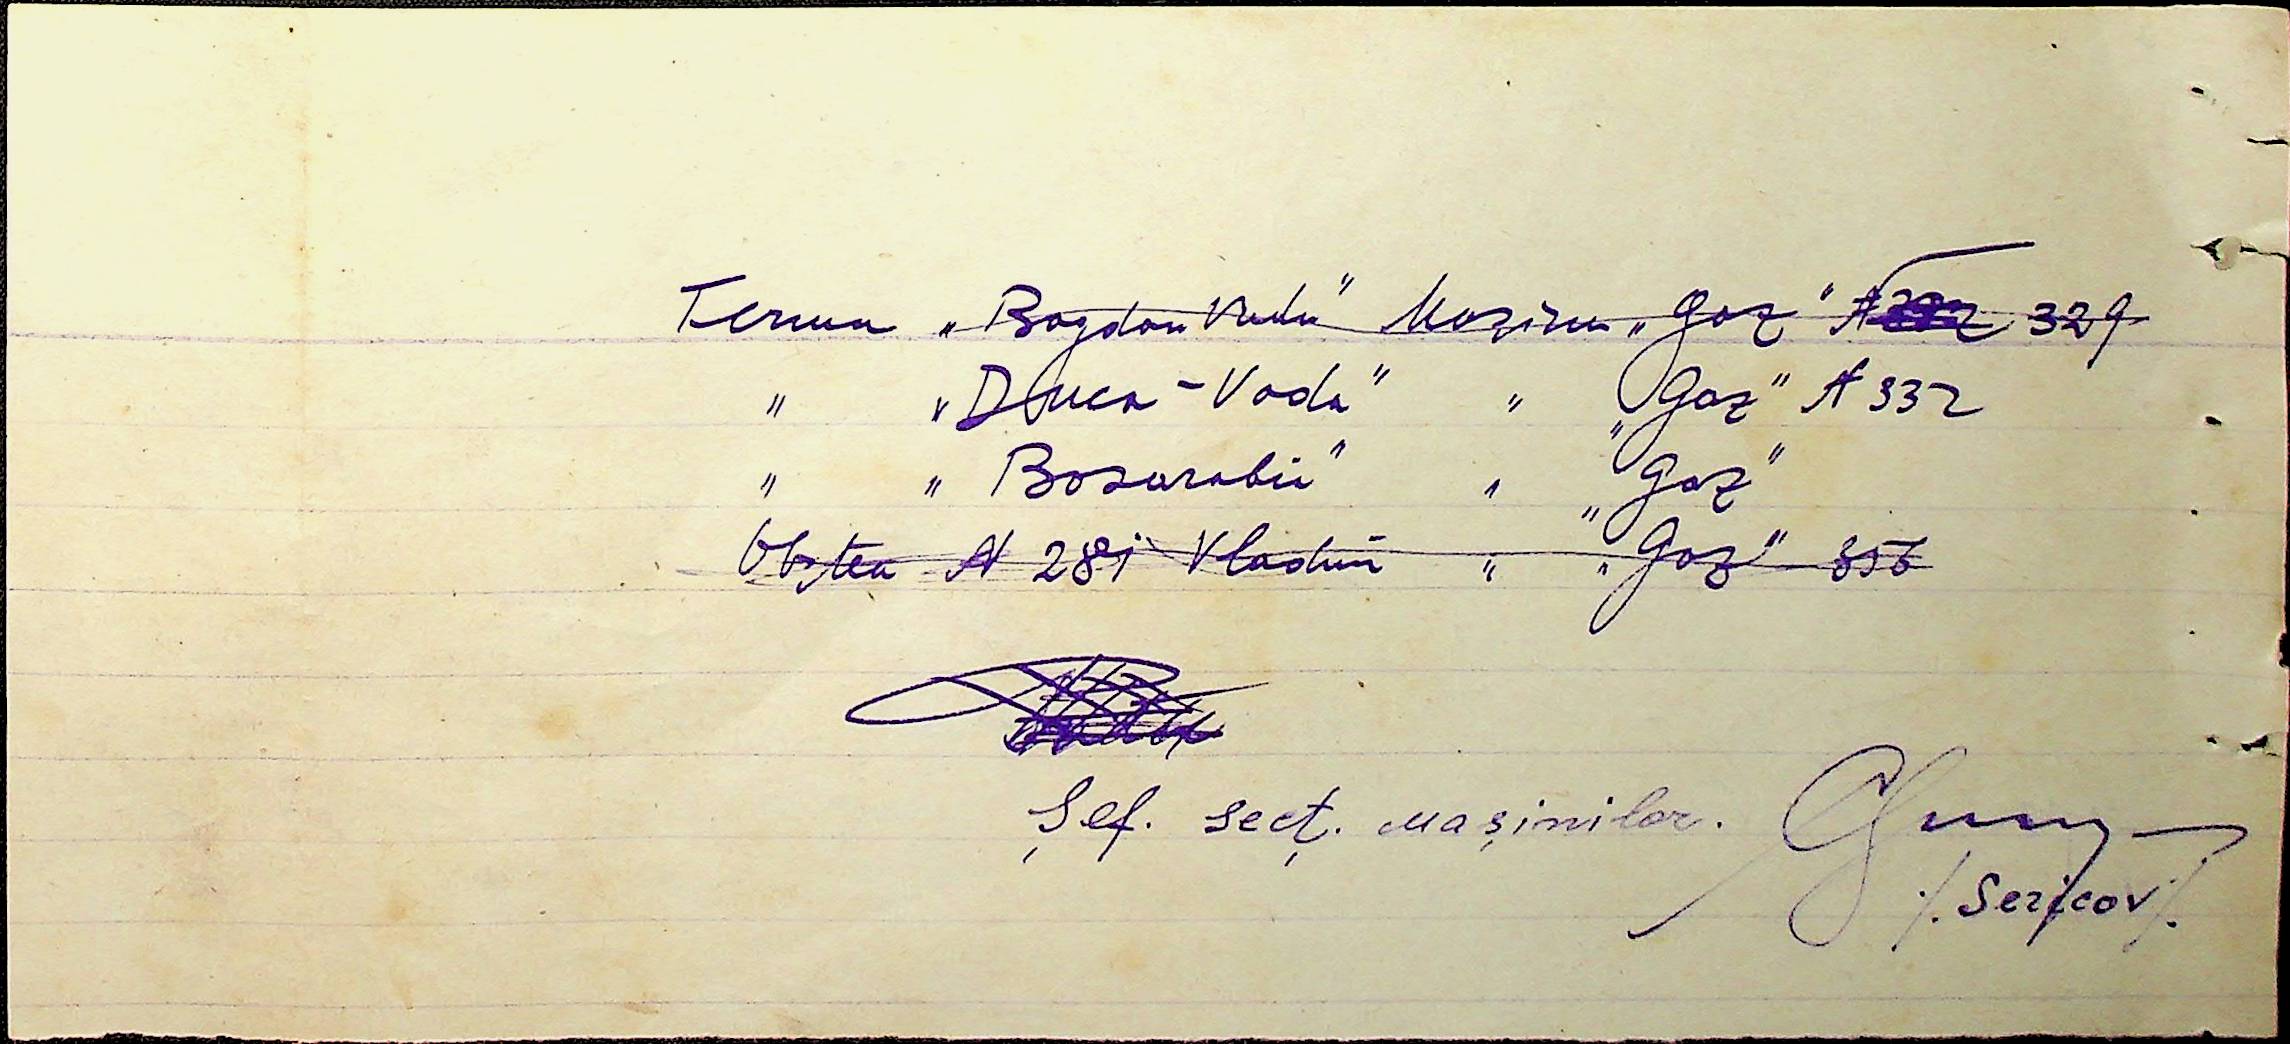 Ferma „Bogdan Vodă" Mașina „Gaz" N 329
" „Duca-Vodă" " „Gaz" N 332
" „Basarabia" " „Gaz"
Obștea N 281 " „Gaz" 356
Șef. secț. mașinilor.
/. Sericov /.